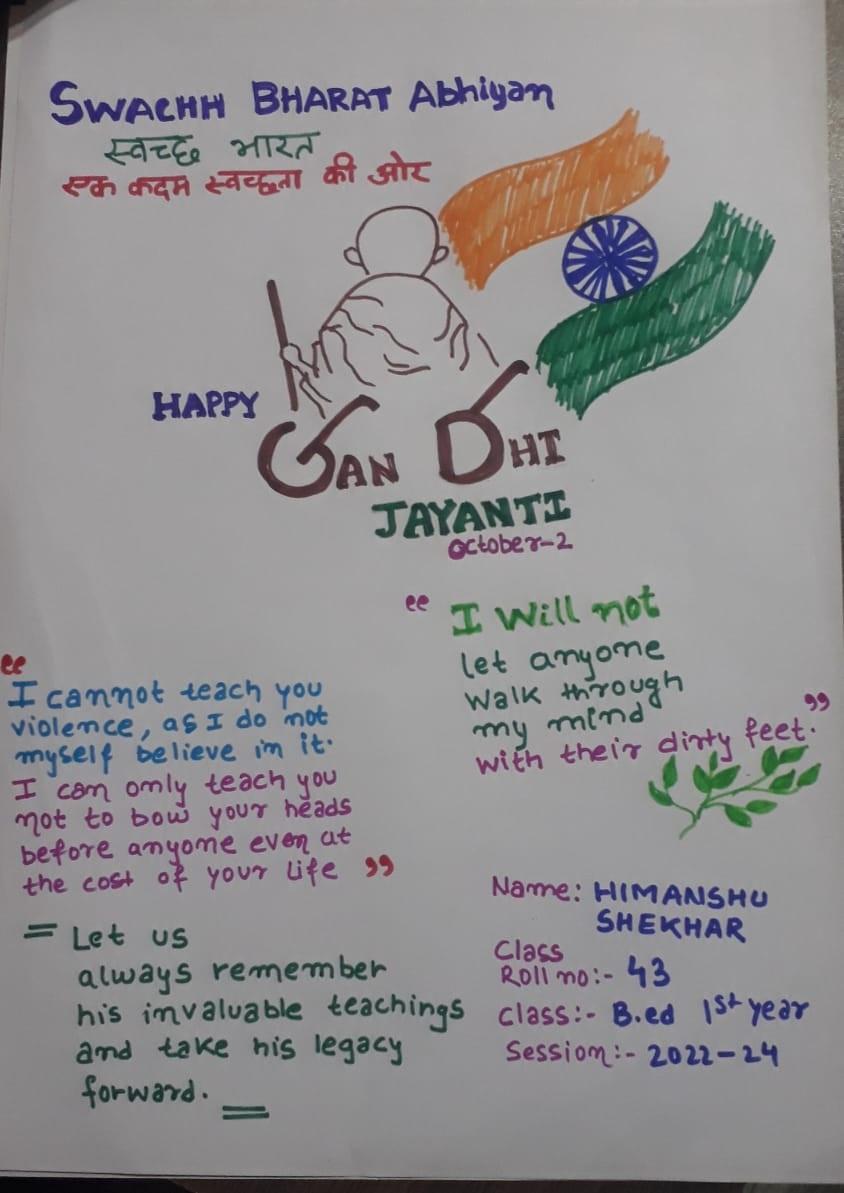 SWACHH BHARAT Abhiyan
स्वच्छ भारत
एक कदम स्वच्छता की ओर
HAPPY
GAN DHI
JAYANTI
October-2
“ I Will not
let anyone
walk through
my mind
with their dirty feet. ”
“
I cannot teach you
violence, as I do not
myself believe in it.
I can only teach you
not to bow your heads
before anyone even at
the cost of your life ”
= Let us
always remember
his invaluable teachings
and take his legacy
forward. =
Name: HIMANSHU
SHEKHAR
Class
Roll no:- 43
class:- B.ed 1st year
Session:- 2022-24